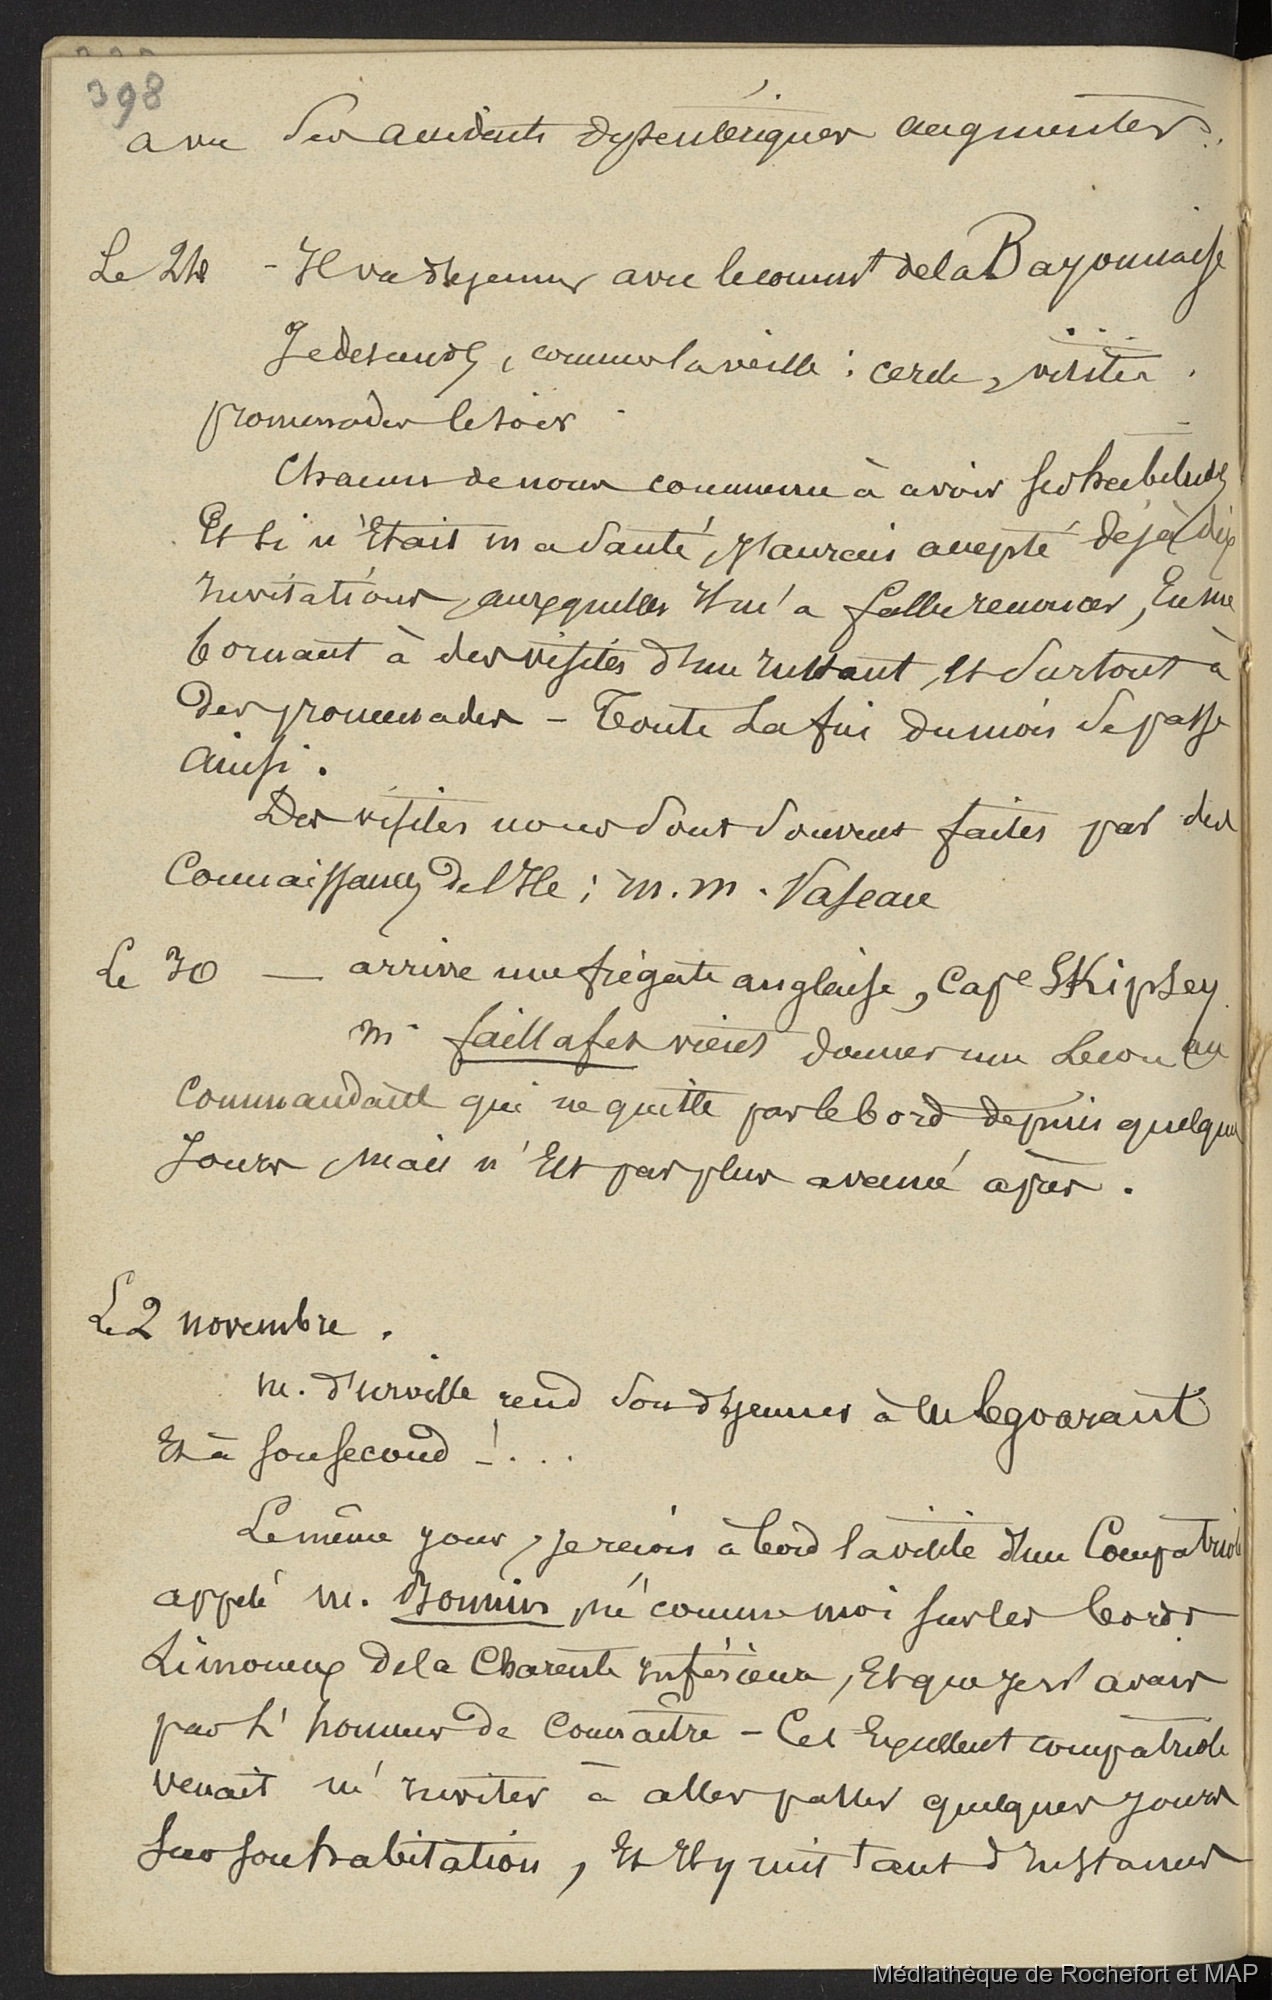 398
a vu ses accidents dysentériques augmenter.
Le 24 - Il va déjeuner avec le commt de la Bayonnaise
Je descends, comme la veille : cercle, visites.
promenades le soir.
Chacun de nous commence à avoir ses habitudes
Et si n'Etait ma santé, J'aurais accepté déjà dix
Invitations, auxquelles Il m'a fallu renoncer, En me
bornant à des visites d'un Instant, et surtout à
des promenades - Toute la fin du mois se passe
ainsi.
Des visites nous sont souvent faites par des
Connaissances de l'Ile ; m.m. Vaseau
Le 30 — arrive une frégate anglaise, Cape Skipsey
Mr faillafet vient donner une lecon au
Commandant qui ne quitte pas le bord depuis quelques
Jours, mais n'Est pas plus avancé après.
Le 2 novembre.
M. d'urville rend son déjeuner à M legoarant
Et à son second ! . . .
Le même jour, Je recois à bord la visite d'un Compatriote
appelé M. Bonnin, né comme moi sur les bords
Limoneux de la Charente Inférieure, Et que Je n'avais
pas L'honneur de Connaître - Cet Excellent compatriote
venait m'Inviter à aller passer quelques Jours
sur son habitation, Et Il y mit tant d'Instances
Médiathèque de Rochefort et MAP